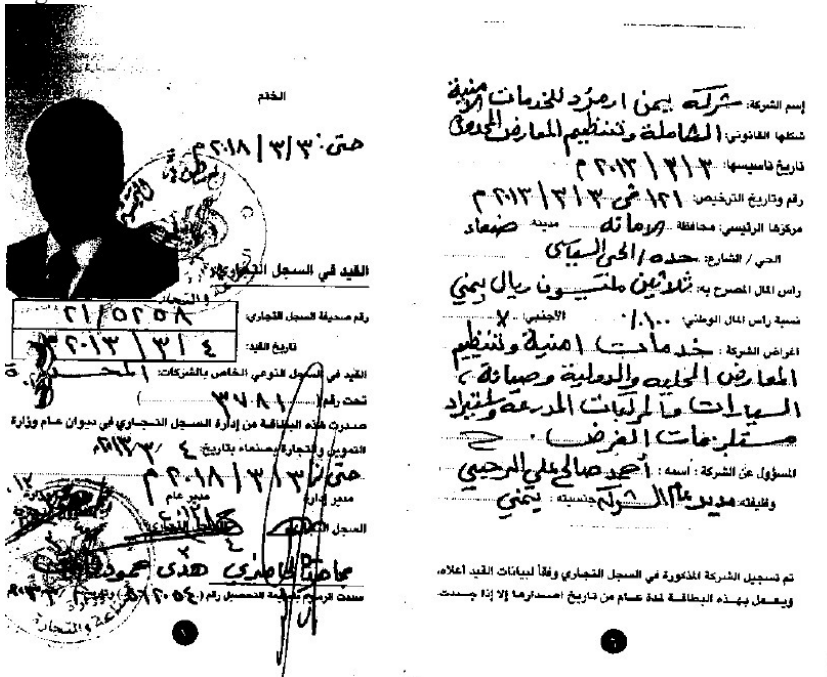 إسم الشركة: شركة يمن ارمرد للخدمات الامنية
شكلها القانوني: الشاملة وتنظيم المعارض المحدودة
تاريخ تاسيسها: ٣ / ٣ / ٢٠١٣ م
رقم وتاريخ الترخيص: ١٢١ في ٣ / ٣ / ٢٠١٣ م
مركزها الرئيسي: محافظة الامانة مدينة صنعاء
الحي / الشارع: حده / الحي السياسي
راس المال المصرح به: ثلاثين مليون ريال يمني
نسبة راس المال الوطني: ١٠٠٪ الأجنبي: X
اغراض الشركة: خدمات امنية وتنظيم
المعارض المحلية والدولية وصيانة
السيارات والمركبات المدرعة واستيراد
مستلزمات الغرض
المسؤول عن الشركة: اسمه: أحمد صالح علي الرحبي
وظيفته: مدير عام الشركة جنسيته: يمني
تم تسجيل الشركة المذكورة في السجل التجاري وفقا لبيانات القيد أعلاه،
ويعمل بهذه البطاقة لمدة عام من تاريخ اصدارها إلا إذا جددت
٦
الختم
حتى: ٣ / ٣ / ٢٠١٨ م
القيد في السجل التجاري
رقم صحيفة السجل التجاري: ٢١/٥٢٥٨
تاريخ القيد: ٤ / ٣ / ٢٠١٣
القيد في السجل النوعي الخاص بالشركات:
تحت رقم ( ٣٧٨١ )
صدرت هذه البطاقة من إدارة السجل التجاري في ديوان عام وزارة
التموين والتجارة بصنعاء بتاريخ: ٤ / ٣ / ٢٠١٣م
حتى ٣ / ٣ / ٢٠١٨ م
مدير إدارة مدير عام
السجل التجاري
هدى محمود
سددت الرسوم بقسيمة التحصيل رقم